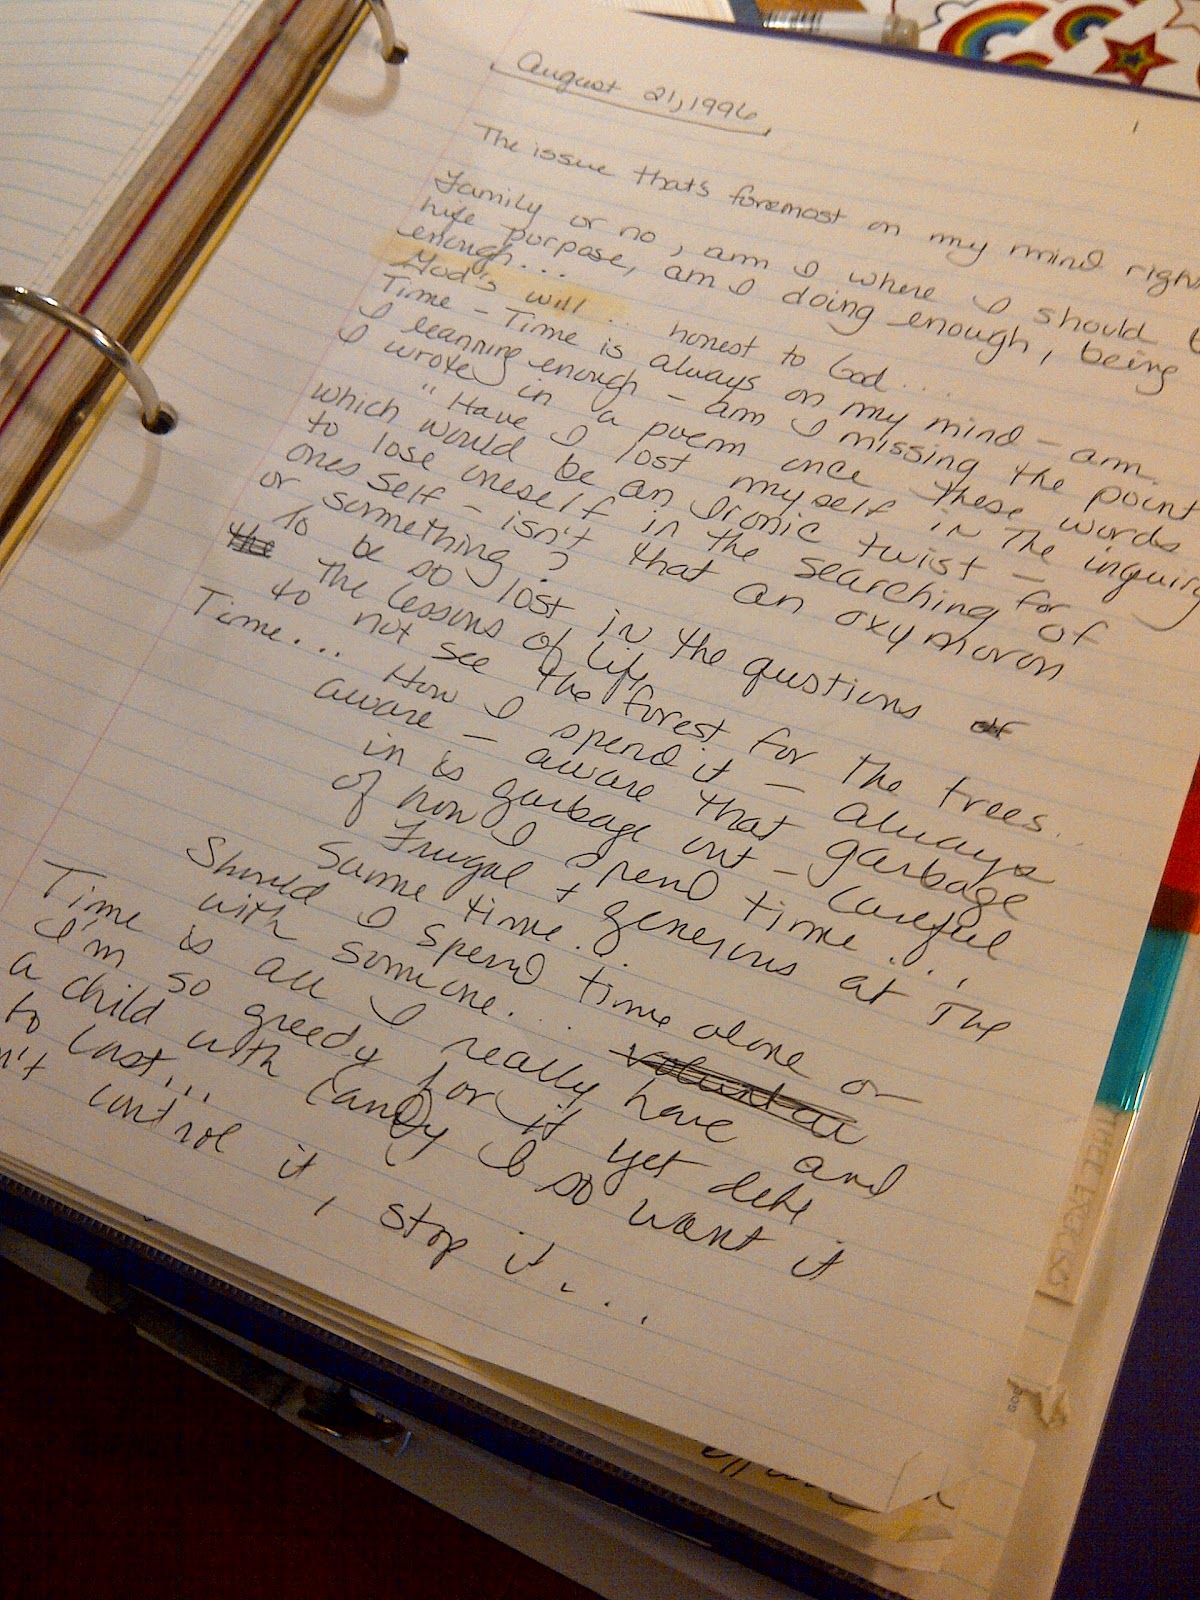 August 21, 1996
1
The issue thats foremost on my mind right
Family or no, am I where I should
life purpose, am I doing enough, being
enough...
God's will... honest to God...
Time - Time is always on my mind - am
I learning enough - am I missing the point
I wrote in a poem once these words
"Have I lost myself in The inquiry
which would be an Ironic twist - for
to lose oneself in the searching of
ones self - isn't that an oxymoron
or something?
To be so lost in the qustions of
the The lessons of life
to not see the forest for the trees.
Time... How I spend it - always
aware - aware that garbage
in is garbage out - careful
of how I spend time...
Frugal + generous at The
same time...
Should I spend time alone or
with someone...
Time is all I really have and
I'm so greedy for it yet like
a child with candy I so want it
to last...
n't control it, stop it....